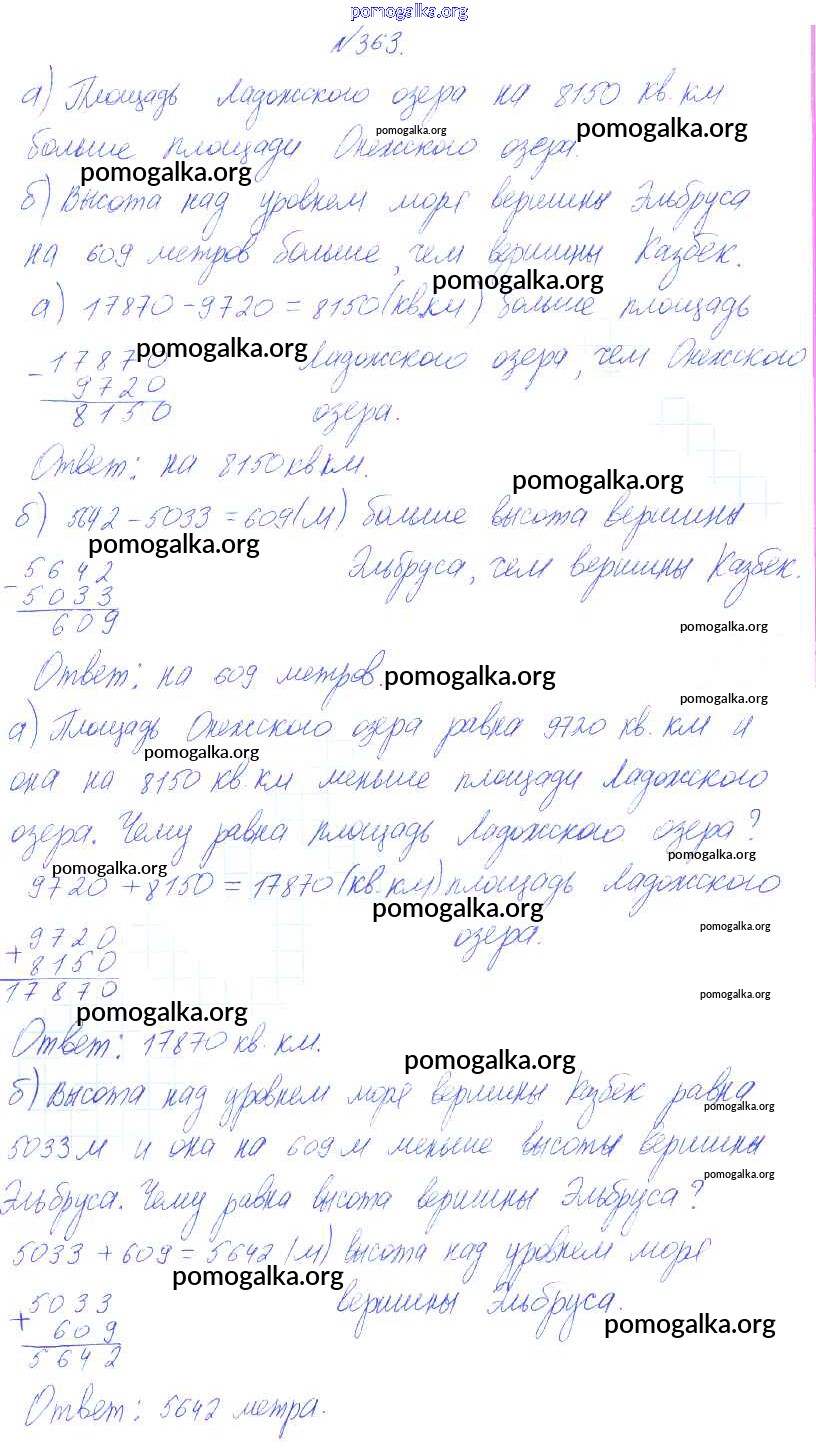 pomogalka.org
№363.
а) Площадь Ладожского озера на 8150 кв. км
pomogalka.org pomogalka.org
больше площади Онежского озера.
pomogalka.org
б) Высота над уровнем моря вершины Эльбруса
на 609 метров больше, чем вершины Казбек.
pomogalka.org
а) 17870 - 9720 = 8150 (кв.км) больше площадь
pomogalka.org
- 17870 Ладожского озера, чем Онежского
9720
8150 озера.
Ответ: на 8150 кв км.
pomogalka.org
б) 5642 - 5033 = 609 (м) больше высота вершины
pomogalka.org
- 5642 Эльбруса, чем вершины Казбек.
5033
609
pomogalka.org
Ответ: на 609 метров.
pomogalka.org
pomogalka.org
а) Площадь Онежского озера равна 9720 кв. км и
pomogalka.org
она на 8150 кв. км меньше площади Ладожского
озера. Чему равна площадь Ладожского озера?
pomogalka.org
pomogalka.org
9720 + 8150 = 17870 (кв. км) площадь Ладожского
pomogalka.org
pomogalka.org
+ 9720 озера.
8150
17870
pomogalka.org
pomogalka.org
Ответ: 17870 кв. км.
pomogalka.org
б) Высота над уровнем моря вершины Казбек равна
pomogalka.org
5033 м и она на 609 м меньше высоты вершины
pomogalka.org
Эльбруса. Чему равна высота вершины Эльбруса?
5033 + 609 = 5642 (м) высота над уровнем моря
pomogalka.org
+ 5033 вершины Эльбруса.
609
pomogalka.org
5642
Ответ: 5642 метра.